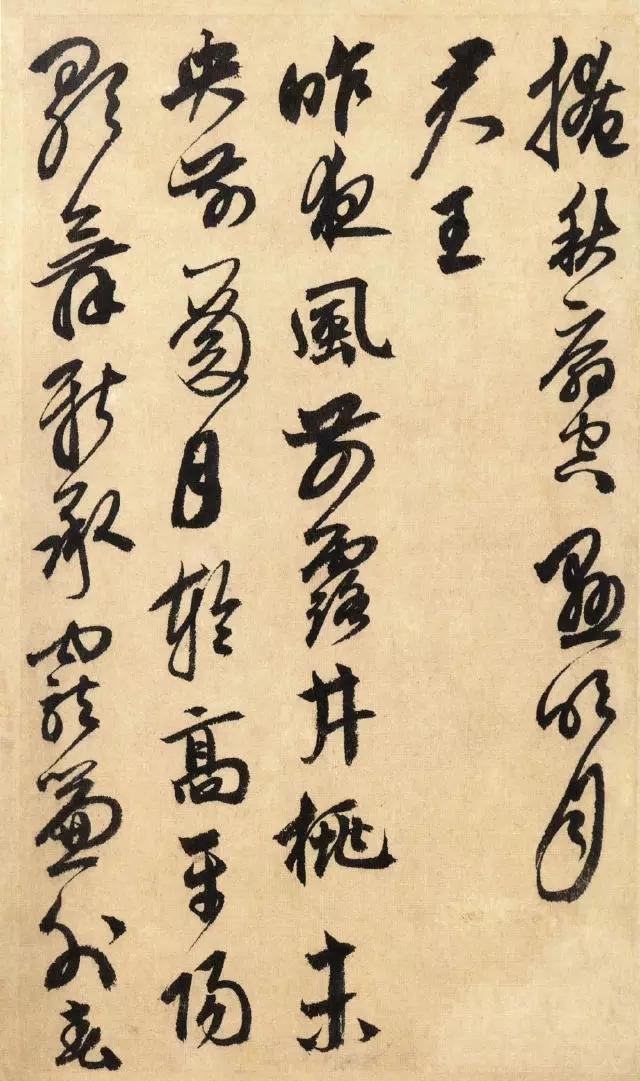 掩秋扇空懸明月
君王
昨夜風開露井桃未
央前殿月輪高平陽
歌舞新承寵簾外春